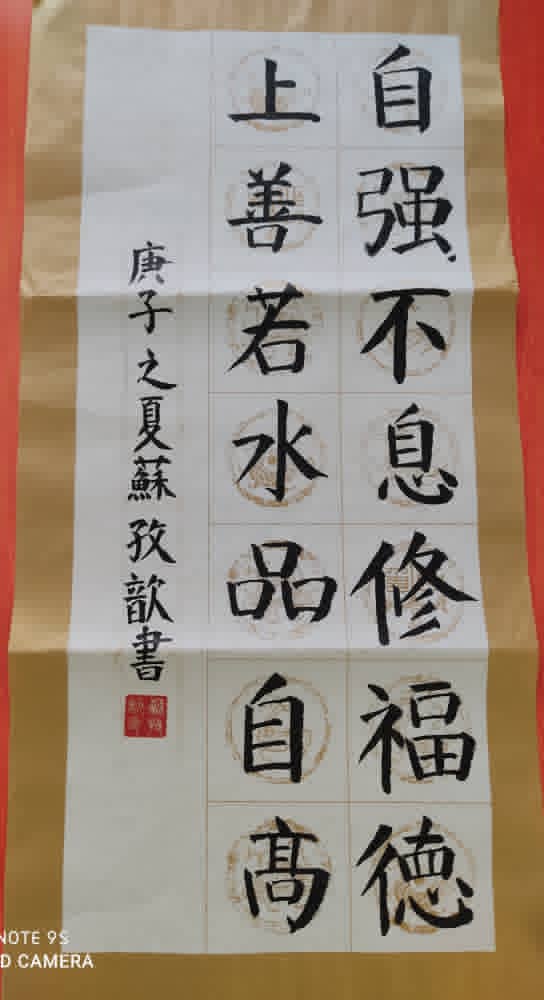 自强不息修福德
上善若水品自髙
庚子之夏蘇孜歆書
NOTE 9S
D CAMERA